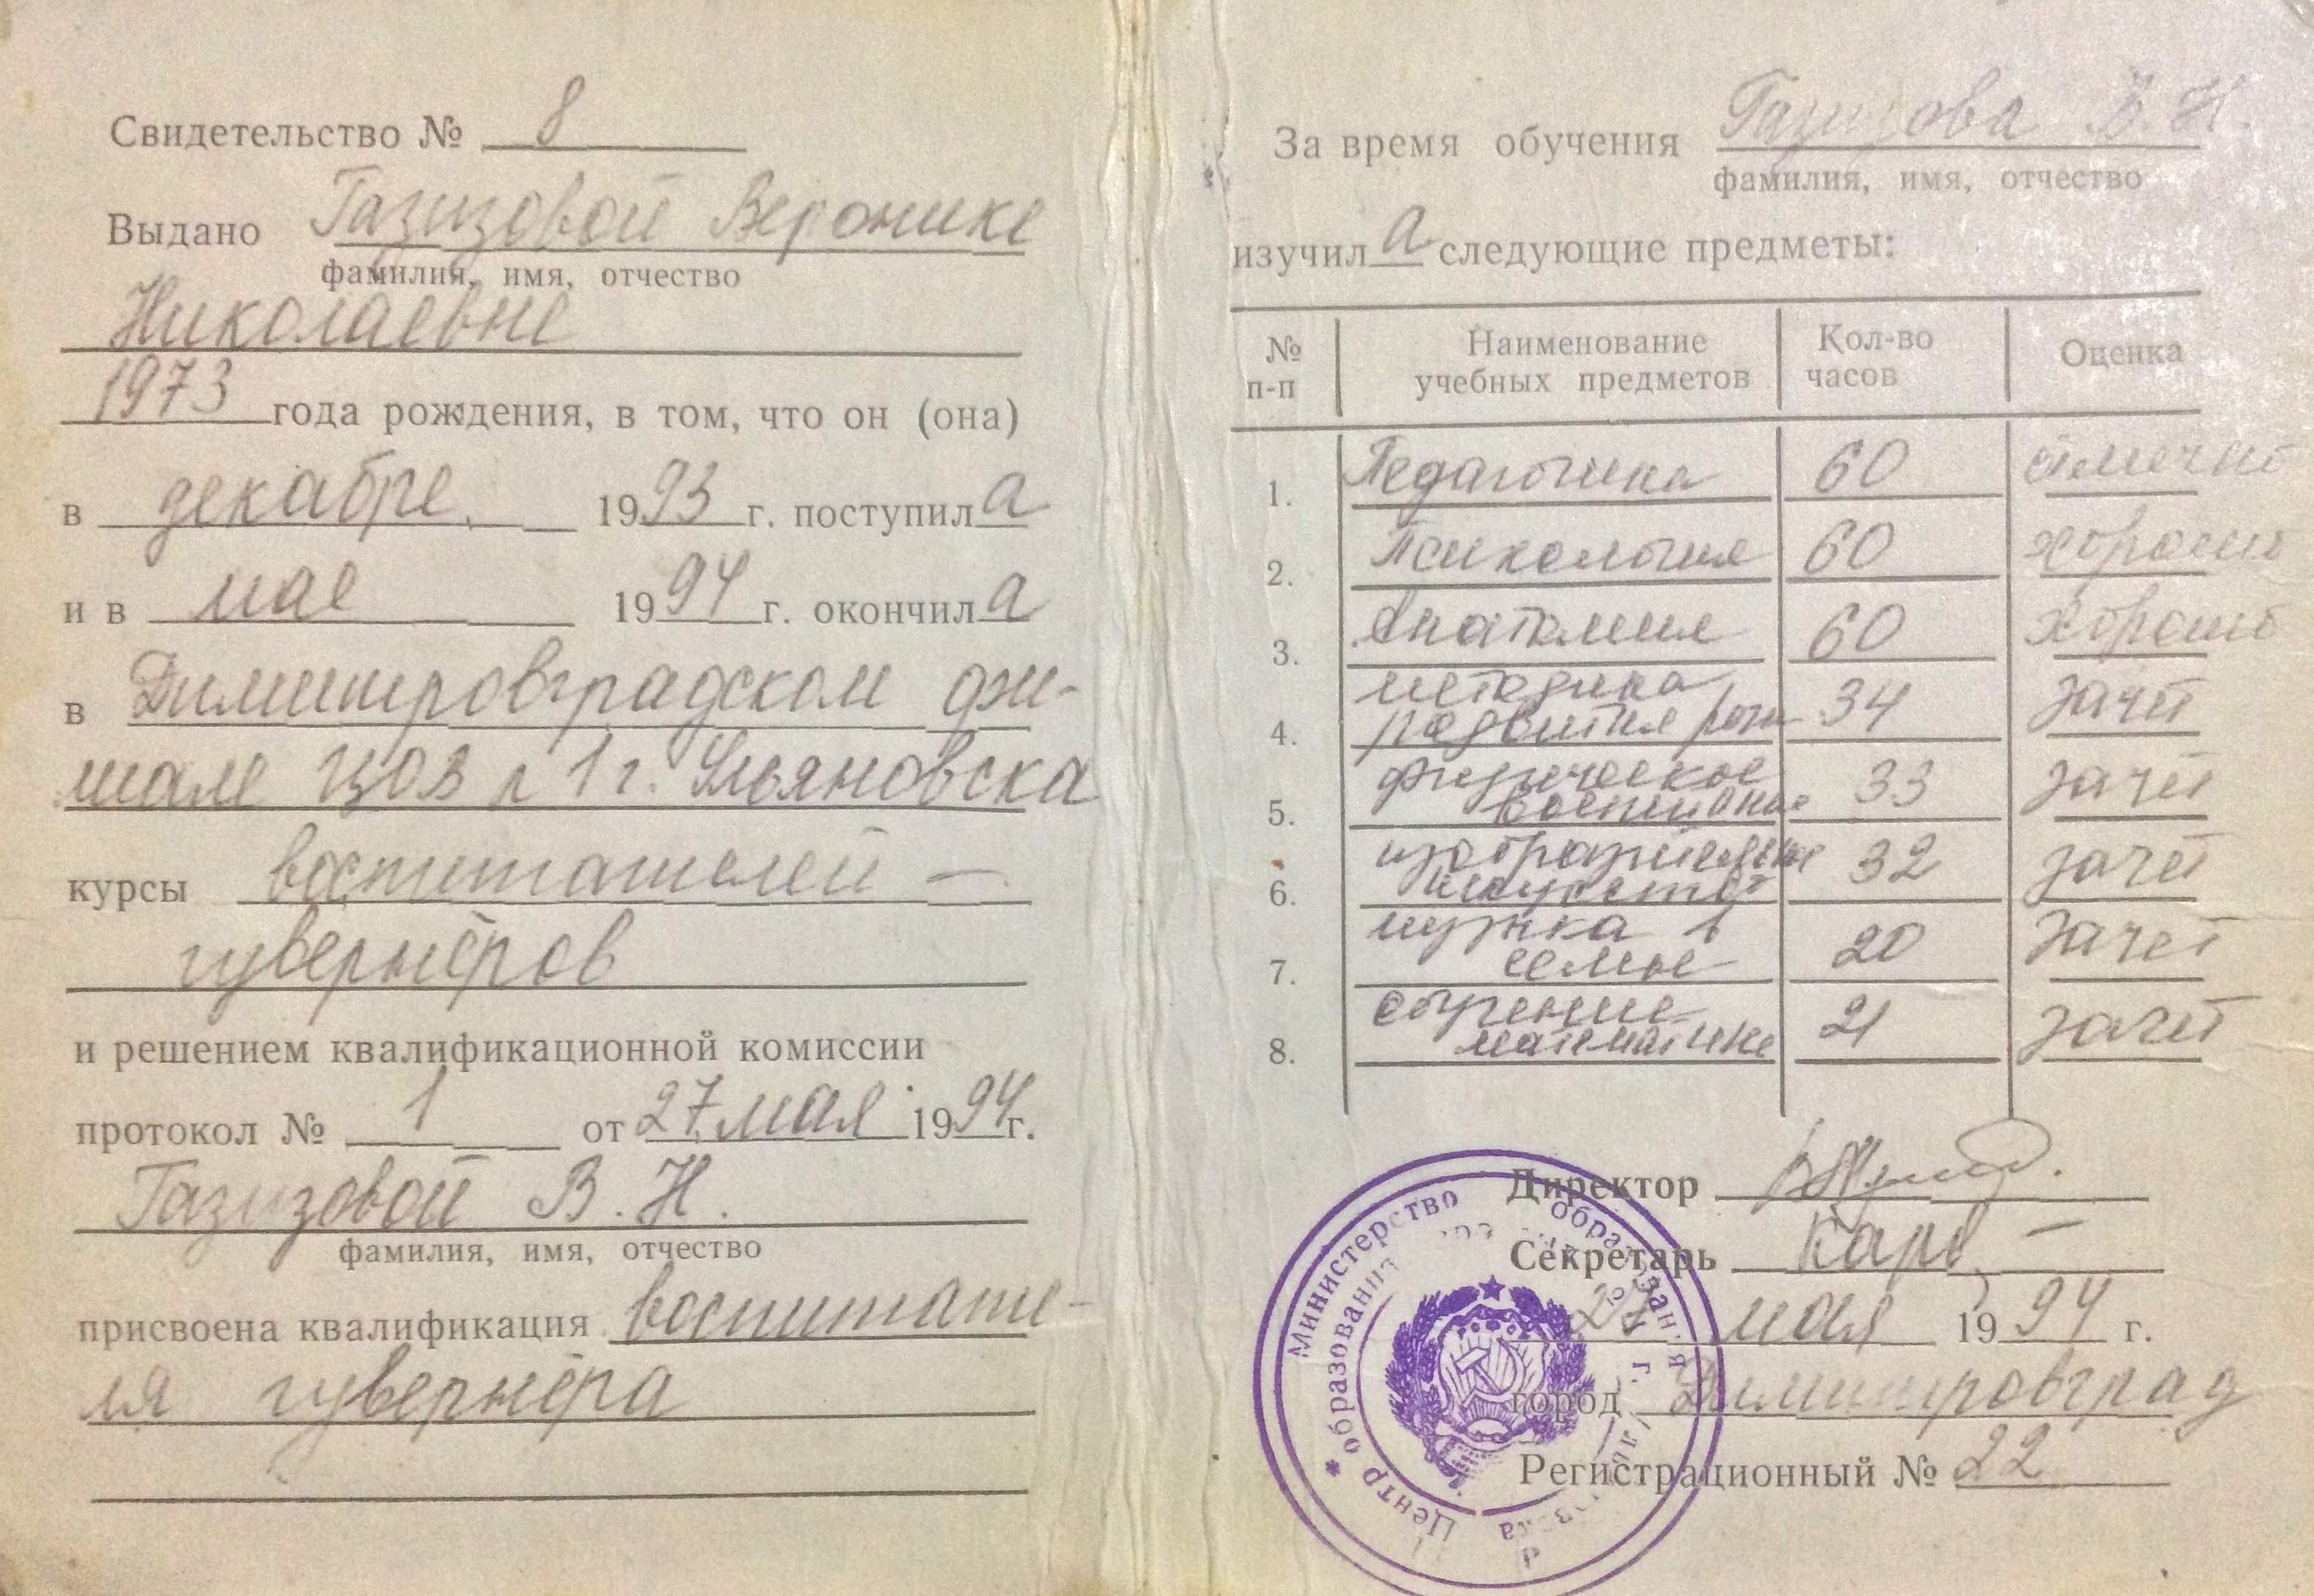 Свидетельство № 8
Выдано Газизовой Веронике
фамилия, имя, отчество
Николаевне
1973 года рождения, в том, что он (она)
в декабре 1993 г. поступила
и в мае 1994 г. окончила
в Димитровградском фи-
лиале ЦОЗ №1 г. Ульяновска
курсы воспитателей —
гувернёров
и решением квалификационной комиссии
протокол № 1 от 27 мая 1994 г.
Газизовой В. Н.
фамилия, имя, отчество
присвоена квалификация воспитате-
ля гувернёра
За время обучения Газизова В. Н.
фамилия, имя, отчество
изучила следующие предметы:
№ п-п Наименование учебных предметов Кол-во часов Оценка
1. Педагогика 60 отлично
2. Психология 60 хорошо
3. Анатомия 60 хорошо
4. методика развития речи 34 зачет
5. физическое воспитание 33 зачет
6. изобразительное искусство 32 зачет
7. музыка в семье 20 зачет
8. обучение математике 21 зачет
Директор
Секретарь
мая 1994 г.
город Димитровград
Регистрационный № 22
Министерство образования
Центр образования